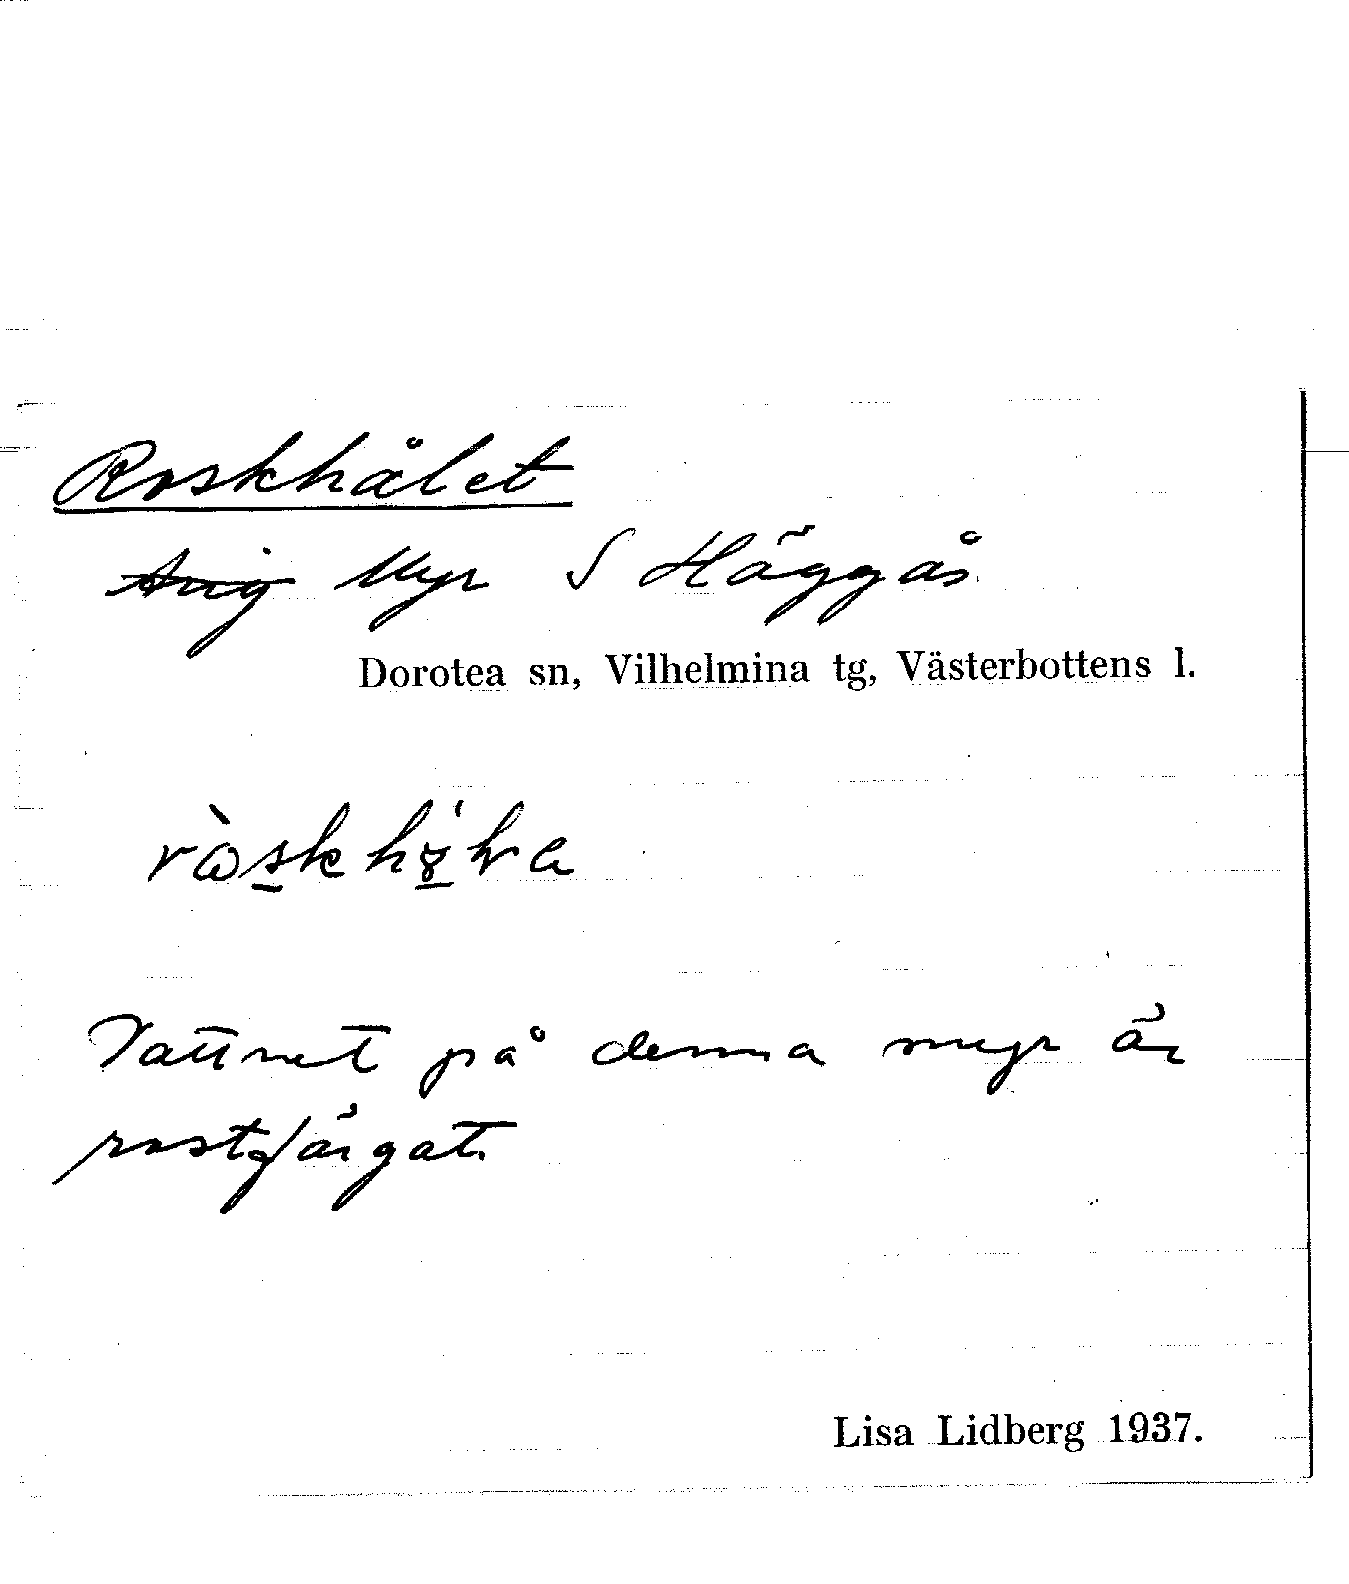 Roskhålet
Myr S Häggås
Dorotea sn, Vilhelmina tg, Västerbottens l.
Vattnet på denna myr är
rostfärgat.
Lisa Lidberg 1937.